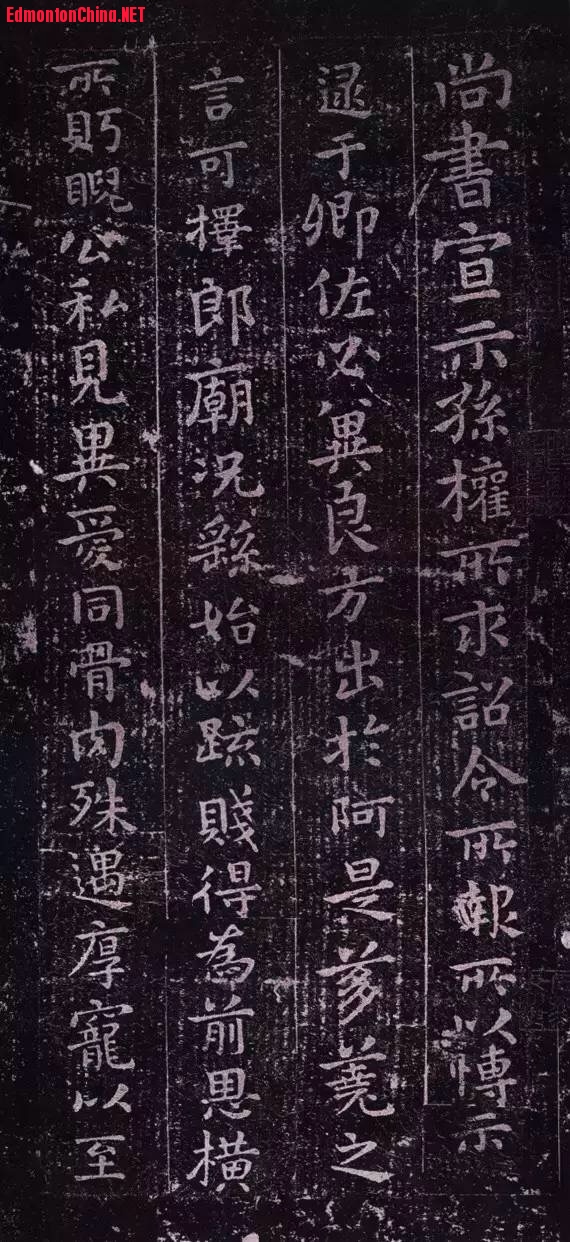 EdmontonChina.NET
尚書宣示孫權所求詔令所報所以博示
逮于卿佐必冀良方出於阿是芻蕘之
言可擇郎廟況繇始以疏賤得為前恩橫
所眄睨公私見異愛同骨肉殊遇厚寵以至